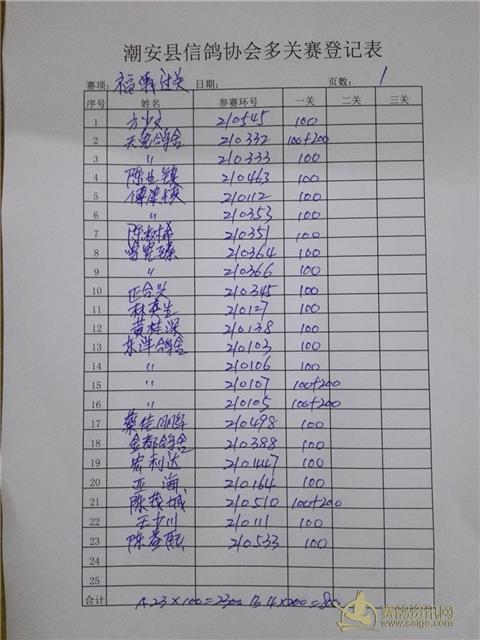 潮安县信鸽协会多关赛登记表
赛项: 福 关 日期: 页数: 1
序号 姓名 参赛环号 一关 二关 三关
1 方少文 210545 100
2 天宠鸽舍 210332 100+200
3 〃 210333 100
4 陈 镇 210463 100
5 傅 210112 100
6 〃 210353 100
7 陈树 210351 100
8 曾宪臻 210364 100
9 〃 210366 100
10 正合兴 210345 100
11 林 生 210127 100
12 黄桂深 210138 100
13 东洋鸽舍 210103 100
14 〃 210106 100
15 〃 210107 100+200
16 〃 210105 100+200
17 蔡佳 210498 100
18 金都鸽舍 210388 100
19 宏利达 210447 100
20 亚海 210164 100
21 陈茂城 210510 100+200
22 王少川 210111 100
23 陈 熙 210533 100
24
25
合计 A 23×100=2300 B 4×200=800
赛鸽资讯网
www.saige.com